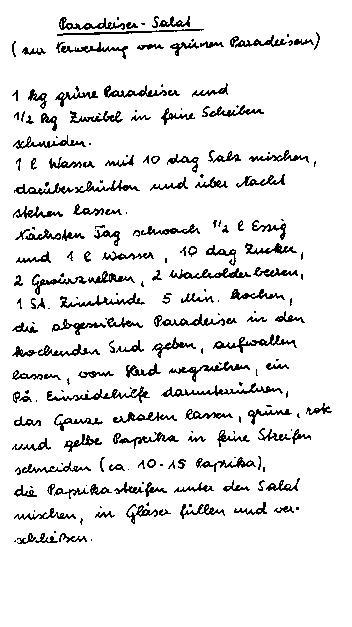 Paradeiser-Salat
(zur Verwertung von grünen Paradeisern)
1 kg grüne Paradeiser und
1/2 kg Zwiebel in feine Scheiben
schneiden.
1 l Wasser mit 10 dag Salz mischen,
darüberschütten und über Nacht
stehen lassen.
Nächsten Tag schwach 1/2 l Essig
und 1 l Wasser, 10 dag Zucker,
2 Gewürznelken, 2 Wacholderbeeren,
1 St. Zimtrinde 5 Min. kochen,
die abgeseihten Paradeiser in den
kochenden Sud geben, aufwallen
lassen, vom Herd wegziehen, ein
Pä. Einsiedehilfe darunterrühren,
das Ganze erkalten lassen, grüne, rote
und gelbe Paprika in feine Streifen
schneiden (ca. 10-15 Paprika),
die Paprikastreifen unter den Salat
mischen, in Gläser füllen und ver-
schließen.